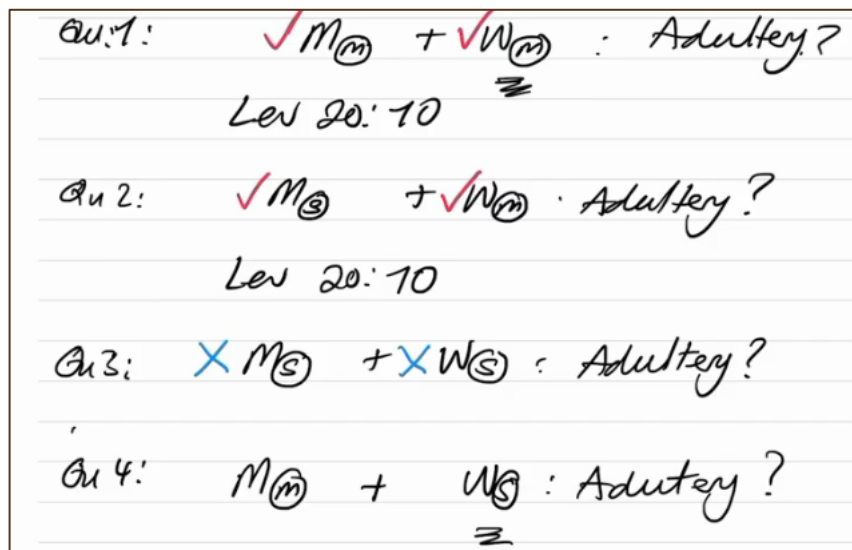 Qu:1: ✓Mⓜ + ✓Wⓜ : Adultery?
Lev 20:10
Qu 2: ✓Mⓢ + ✓Wⓜ . Adultery?
Lev 20:10
Qu3: XMⓢ + XWⓢ : Adultery?
Qu 4: Mⓜ + Wⓢ : Adutery?